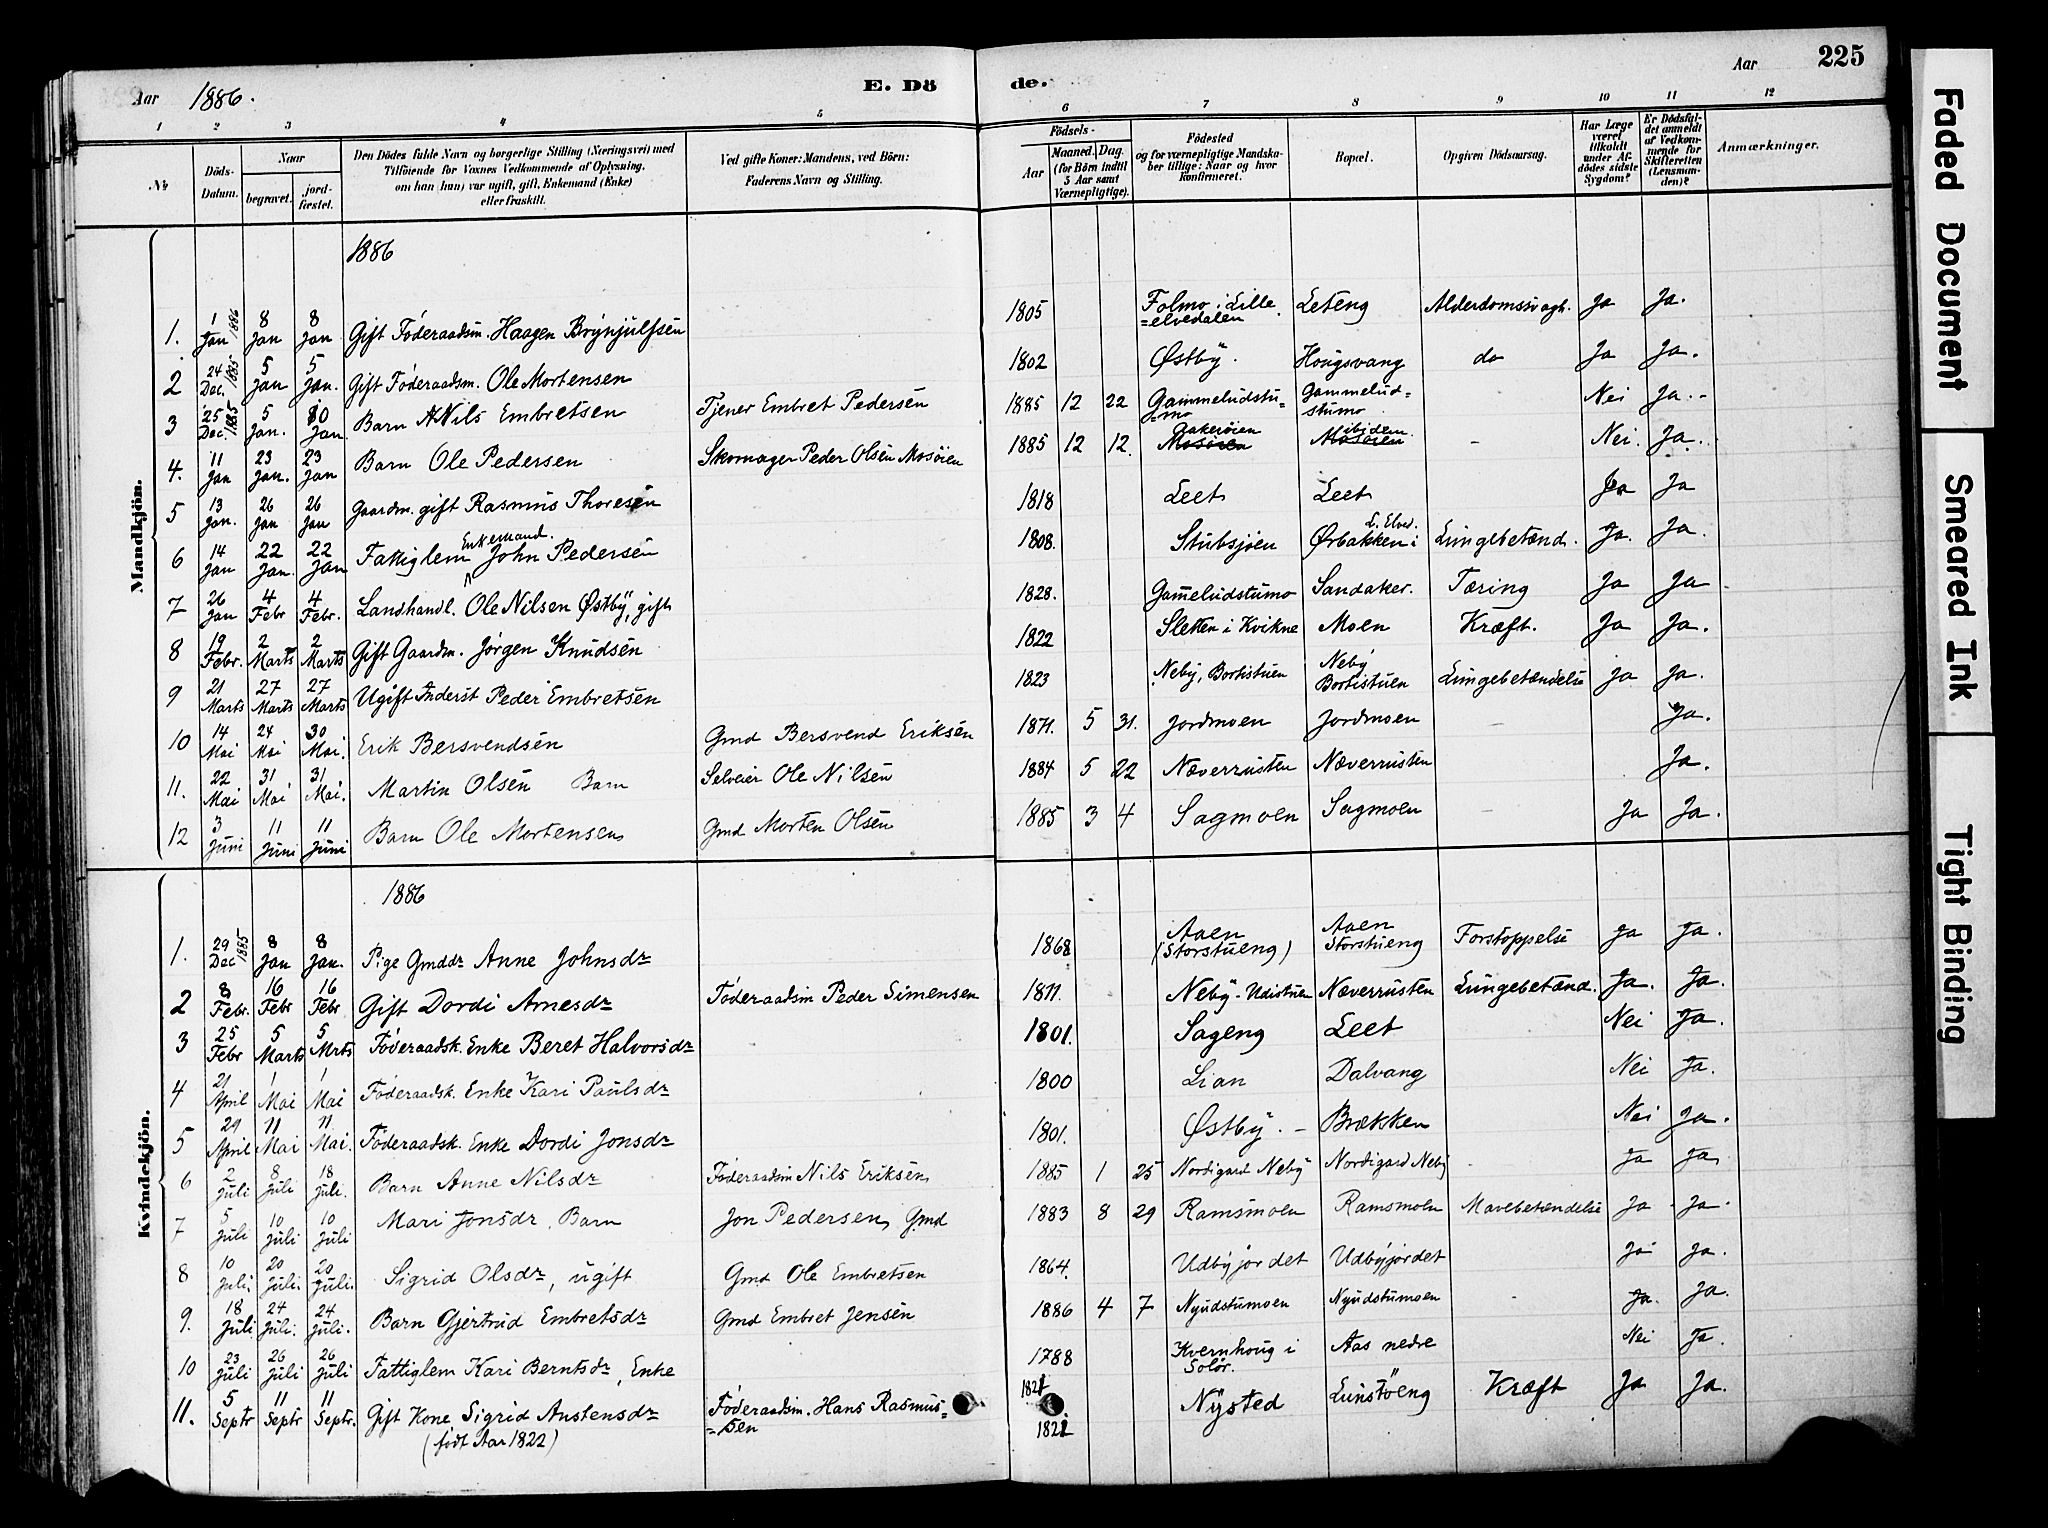 Aar 1886.
E. Dö de.
Aar 225
1 2 3 4 5 6 7 8 9 10 11 12
No
Döds-Datum.
Naar
begravet.
jord-fæstet.
Den Dödes fulde Navn og borgerlige Stilling (Næringsvei) med
Tilföiende for Voxnes Vedkommende af Oplysning,
om han (hun) var ugift, gift, Enkemand (Enke)
eller fraskilt.
Ved gifte Koner: Mandens, ved Börn:
Faderens Navn og Stilling.
Födsels-
Aar
Maaned. Dag.
(for Börn indtil
5 Aar samt
Værnepligtige).
Födested
og for værnepligtige Mandska-
ber tillige: Naar og hvor
konfirmeret.
Bopæl.
Opgiven Dödsaarsag.
Har Læge
været
tilkaldt
under Af-
dödes sidste
Sygdom?
Er Dödsfal-
det anmeldt
af Vedkom-
mende for
Skifteretten
(Lensman-
den)?
Anmærkninger.
Mandkjön.
1886
1. 1 Jan 1886 8 Jan 8 Jan Gift Föderaadsm. Haagen Brynjulfsen 1805 Folmo i Lille=elvedalen. Leteng Alderdomssvagh. Ja Ja.
2 24 Dec. 1885 5 Jan 5 Jan. Gift Föderaadsm. Ole Mortensen 1802 Østby. Hougsvang do Ja Ja.
3 25 Dec. 1885 5 Jan. 10 Jan Barn Nils Embretsen Tjener Embret Pedersen 1885 12 22 Gammeludstu=mo Gammelud=stumo Nei Ja.
4. 11 Jan 23 Jan. 23 Jan Barn Ole Pedersen Skomager Peder Olsen Mosöien 1885 12 12. Aakeröien Mosöien ibidem. Mosöien - Nei. Ja.
5 13 Jan. 26 Jan 26 Jan Gaardm. gift Rasmus Thoresen 1818 Leet Leet Ja Ja
6 14 Jan 22 Jan. 22 Jan Fattiglem Enkemand. John Pedersen 1808. Stubsjöen Ørbakken i L. Elved. Lungebetænd. Ja. Ja.
7 26 Jan 4 Febr 4 Febr. Landhandl. Ole Nilsen Østby, gift 1828. Gameludstumo Sandaker. Tæring Ja Ja
8 19 Febr. 2 Marts 2 Marts Gift Gaardm. Jörgen Knudsen 1822 Sletten i Kvikne Moen Kræft. Ja Ja.
9 21 Marts 27 Marts 27 Marts Ugift Inderst Peder Embretsen 1823 Neby, Bortistuen Neby Bortistuen Lungebetændelse ja Ja.
10 14 Mai 24 Mai 30 Mai. Erik Bersvendsen Gmd Bersvend Eriksen 1871. 5 31. Jordmoen Jordmoen Ja.
11. 22 Mai 31 Mai 31 Mai. Martin Olsen Barn Selveier Ole Nilsen 1884 5 22 Næverrusten Næverrusten Ja.
12 3 Juni 11 Juni 11 Juni Barn Ole Mortensen Gmd Morten Olsen 1885 3 4 Sagmoen Sagmoen - Ja Ja.
Kvindekjön.
1886
1. 29 Dec 1885 8 Jan 8 Jan. Pige Gmddr Anne Johnsdr 1868 Aaen (Storstueng) Aaen Storstueng Forstoppelse Ja Ja.
2 8 Febr. 16 Febr 16 Febr Gift Dordi Arnesdr Föderaadsm Peder Simensen 1811. Neby-Udistuen Næverrusten Lungebetænd. Ja. Ja.
3 25 Febr 5 Marts 5 Mrts Föderaadsk. Enke Beret Halvorsdr 1801. Sageng Leet Nei Ja.
4 21 April 1 Mai 1 Mai Föderaadsk. Enke Kari Paulsdr 1800 Lian Dalvang Nei Ja.
5 29 April 11 Mai 11. Mai. Föderaadsk. Enke Dordi Jonsdr 1801. Østby. - Brækken Nei Ja.
6 2 Juli 8 Juli 18 Juli. Barn Anne Nilsdr Föderaadsm Nils Eriksen 1885 1 25 Nordigard Neby Nordigard Neby - Ja Ja
7 5 Juli 10 Juli 10 Juli Mari Jonsdr, Barn Jon Pedersen, Gmd 1883 8 29 Ramsmoen Ramsmoen Mavebetændelse Ja Ja.
8 10 Juli. 20 Juli. 20 Juli. Sigrid Olsdr, ugift Gmd Ole Embretsen 1864. Udbyjordet Udbyjordet Ja Ja.
9. 18 Juli 24 Juli. 24 Juli. Barn Gjertrud Embretsdr Gmd Embret Jensen 1886 4 7 Nyudstumoen Nyudstumoen - Ja. Ja.
10 23 Juli 26 Juli 26 Juli Fattiglem Kari Berntsdr, Enke 1788 Kvernhoug i Solör. Aas nedre Nei Ja.
11. 5 Septr 11 Septr 11 Septr. Gift Kone Sigrid Austensdr (födt Aar 1822) Föderaadsm. Hans Rasmus=sen 1821 Nysted Kræft Ja Ja.
Faded Document
Smeared Ink
Tight Binding